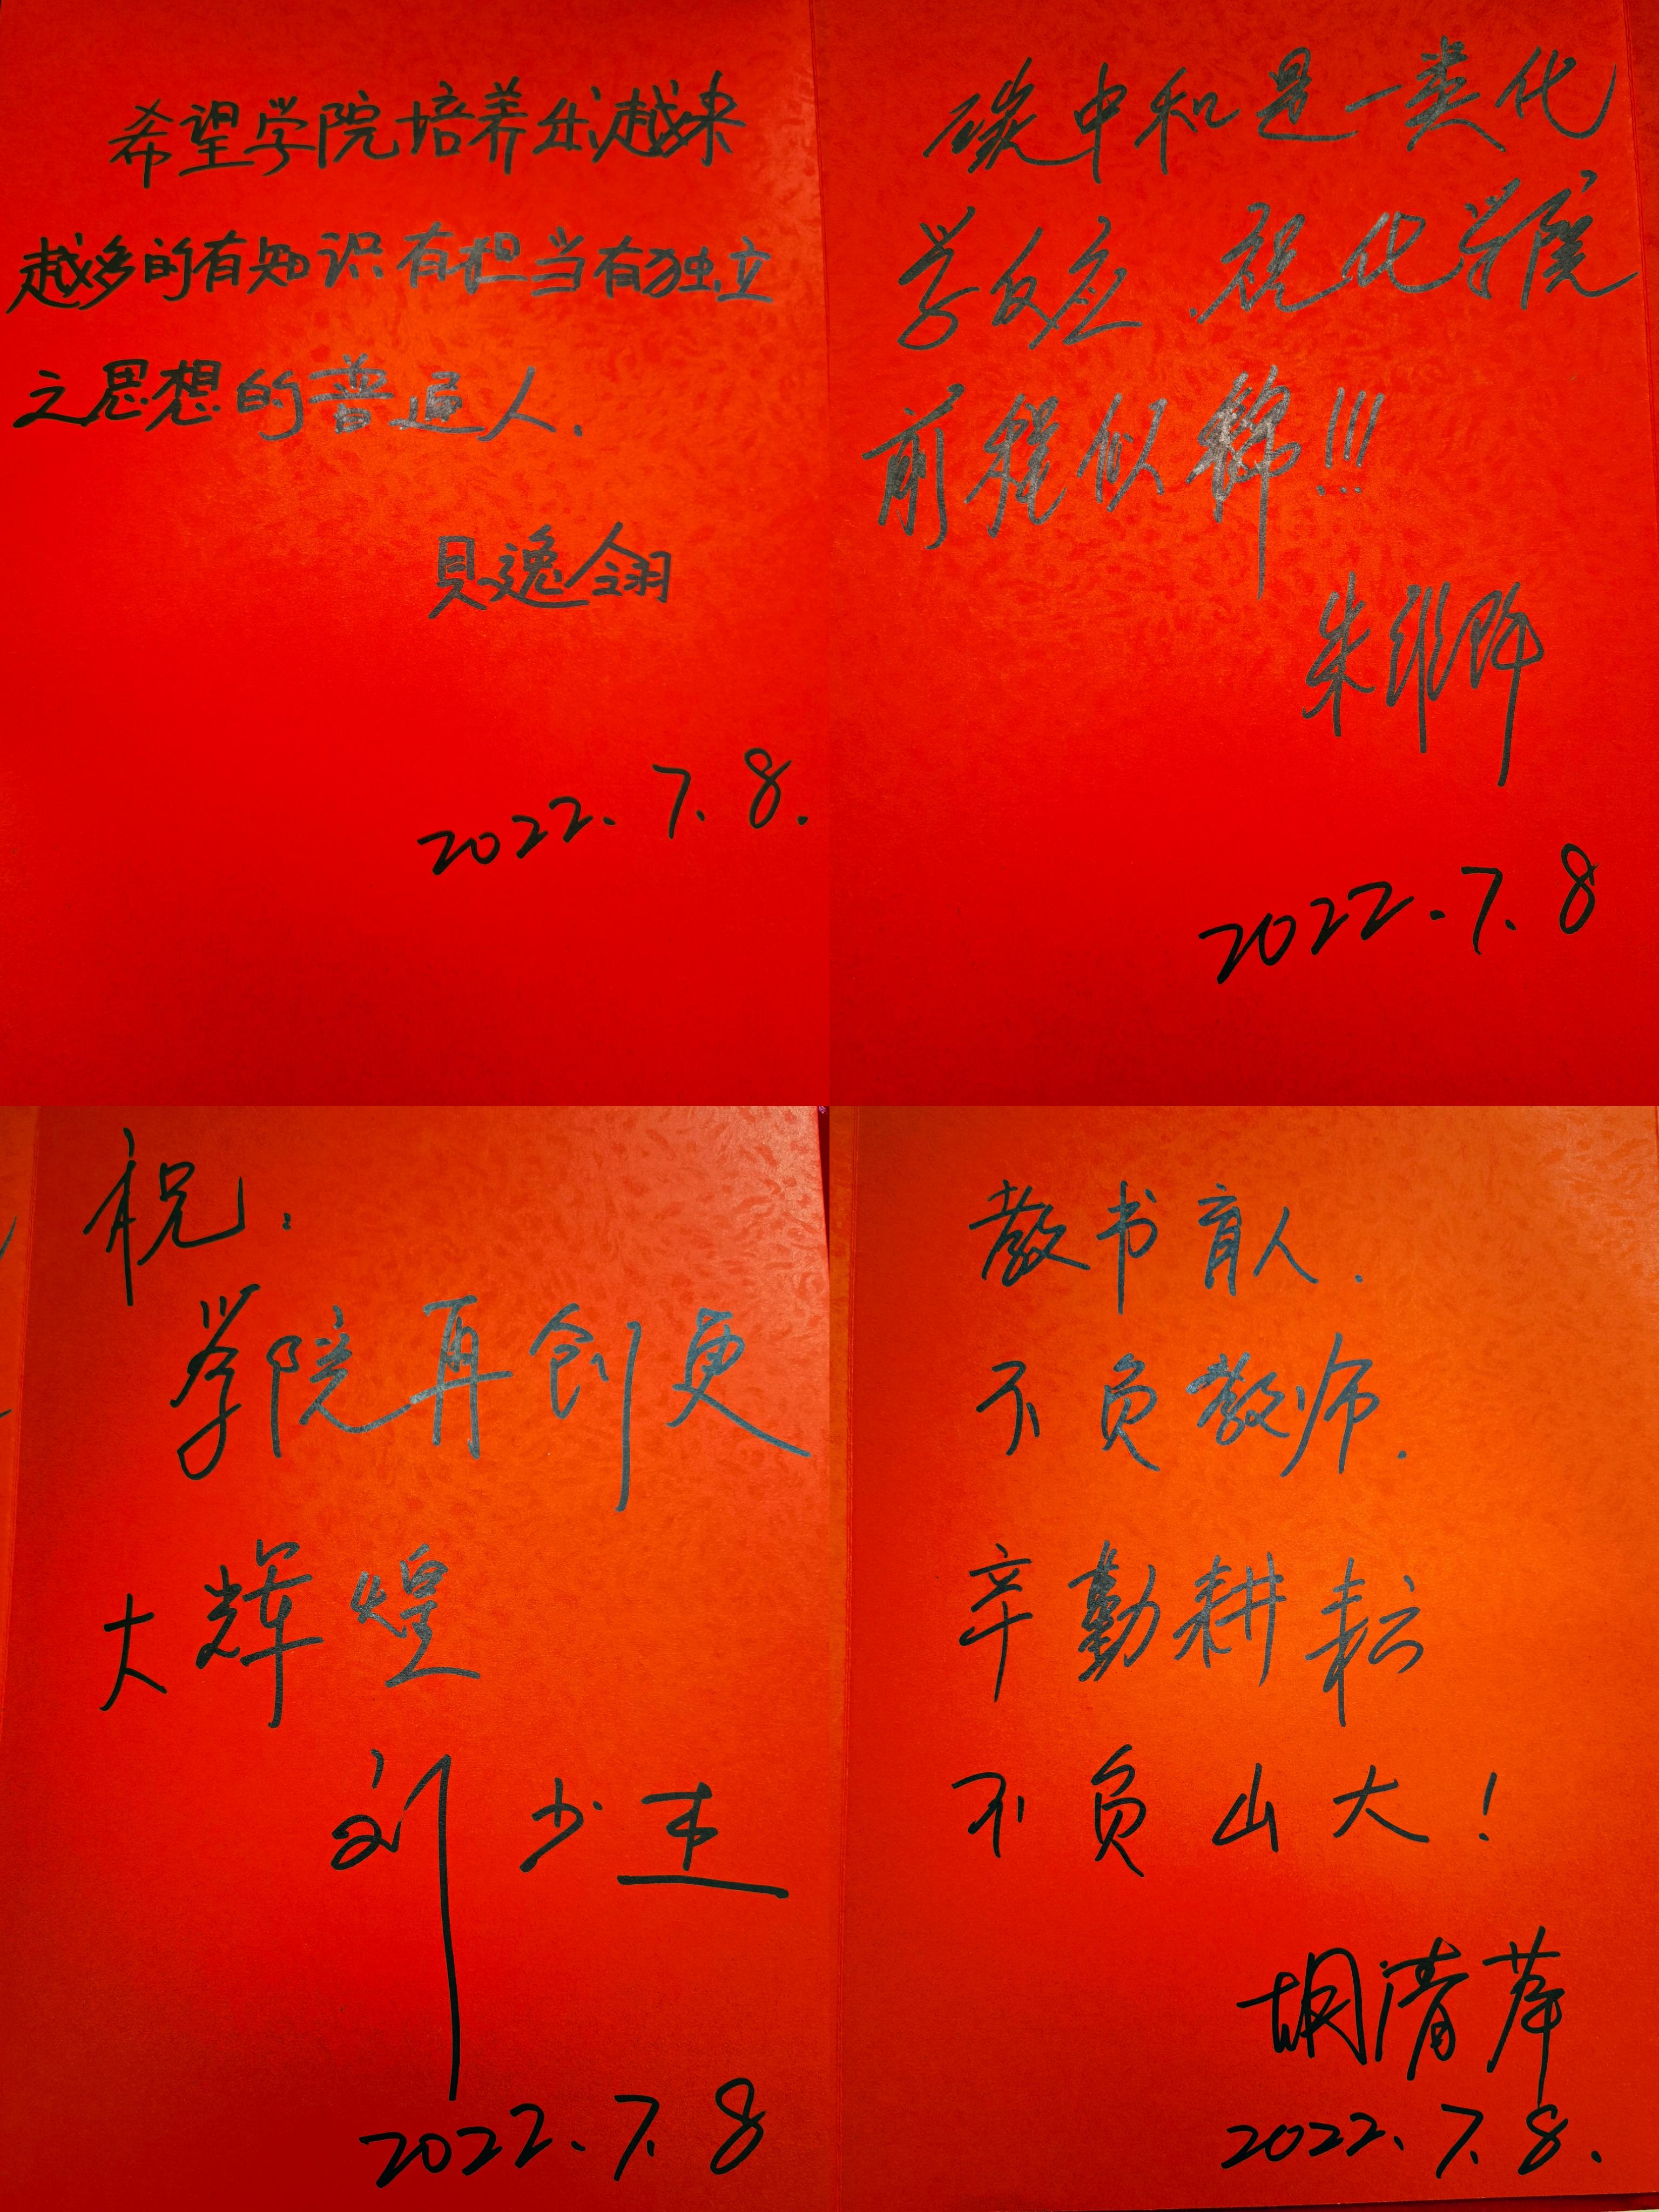 希望学院培养出越来
越多的有知识有担当有独立
之思想的普通人.
贝逸翎
2022.7.8.
碳中和是一类化
学反应,祝化学院
前程似锦!!!
朱维群
2022.7.8
祝:
学院再创更
大辉煌
刘少杰
2022.7.8
教书育人.
不负教师.
辛勤耕耘
不负山大!
胡清萍
2022.7.8.